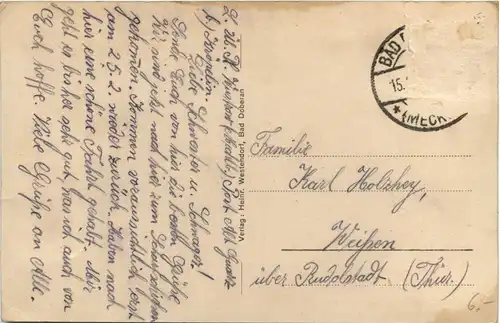 Liebe Schwester u. Schwager!
Sende Euch von hier die besten Grüße
wir sind jetzt nach hier zum
gekommen. Kommen voraussichtlich erst
am 25.2. wieder zurück. Haben nach
hier eine schöne Fahrt gehabt. Mir
geht es bisher sehr gut was ich auch von
Euch hoffe. Viele Grüße an Alle.
Verlag: Heinr. Westendorf, Bad Doberan
BAD
15.
* (MECK
Familie
Karl Holzhey,
Weißen
über Rudolstadt. (Thür.)
6.-